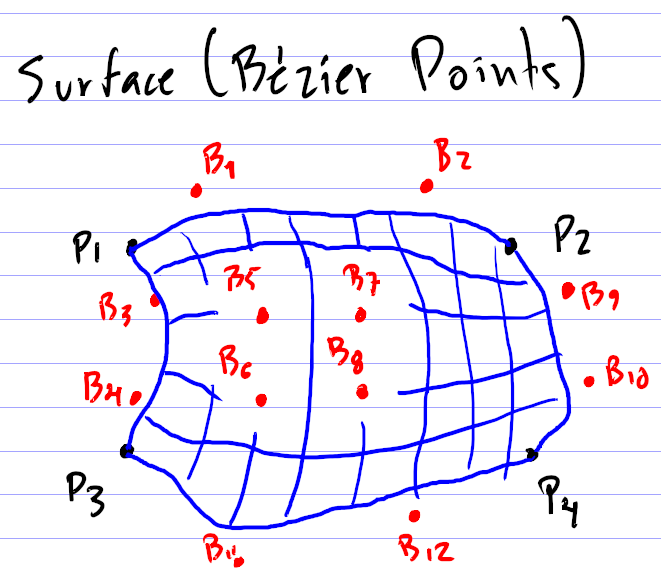 Surface (Bézier Points)
B1 B2
P1 P2
B5 B7
B3 B9
B6 B8
B4 B10
P3 P4
B11 B12